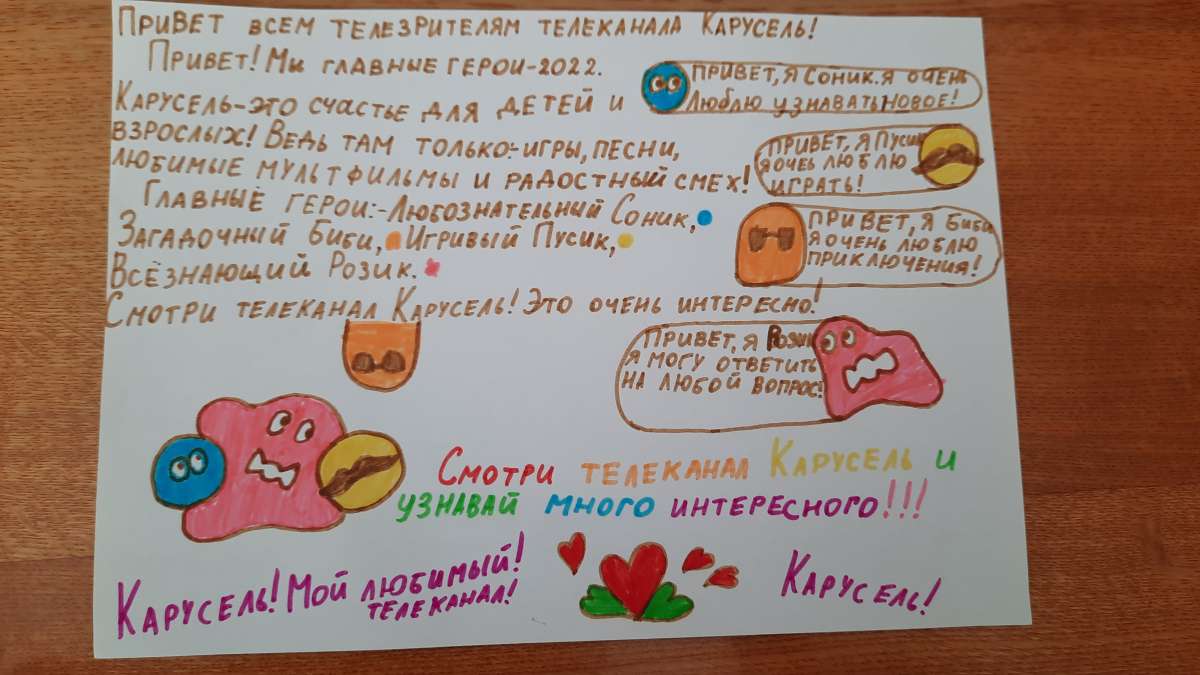 Привет всем телезрителям телеканала Карусель!
Привет! Мы главные герои-2022.
Привет, я Соник. Я очень
люблю узнавать новое!
Карусель-это счастье для детей и
взрослых! Ведь там только:-игры, песни,
любимые мультфильмы и радостный смех!
Привет, я Пусик
я очеь люблю
играть!
Главные герои:-Любознательный Соник,
Загадочный Биби, Игривый Пусик,
Всёзнающий Розик.
Привет, я Биби
я очень люблю
приключения!
Смотри телеканал Карусель! Это очень интересно!
Привет, я Розик
я могу ответить
на любой вопрос!
Смотри телеканал Карусель и
узнавай много интересного!!!
Карусель! Мой любимый!
телеканал!
Карусель!